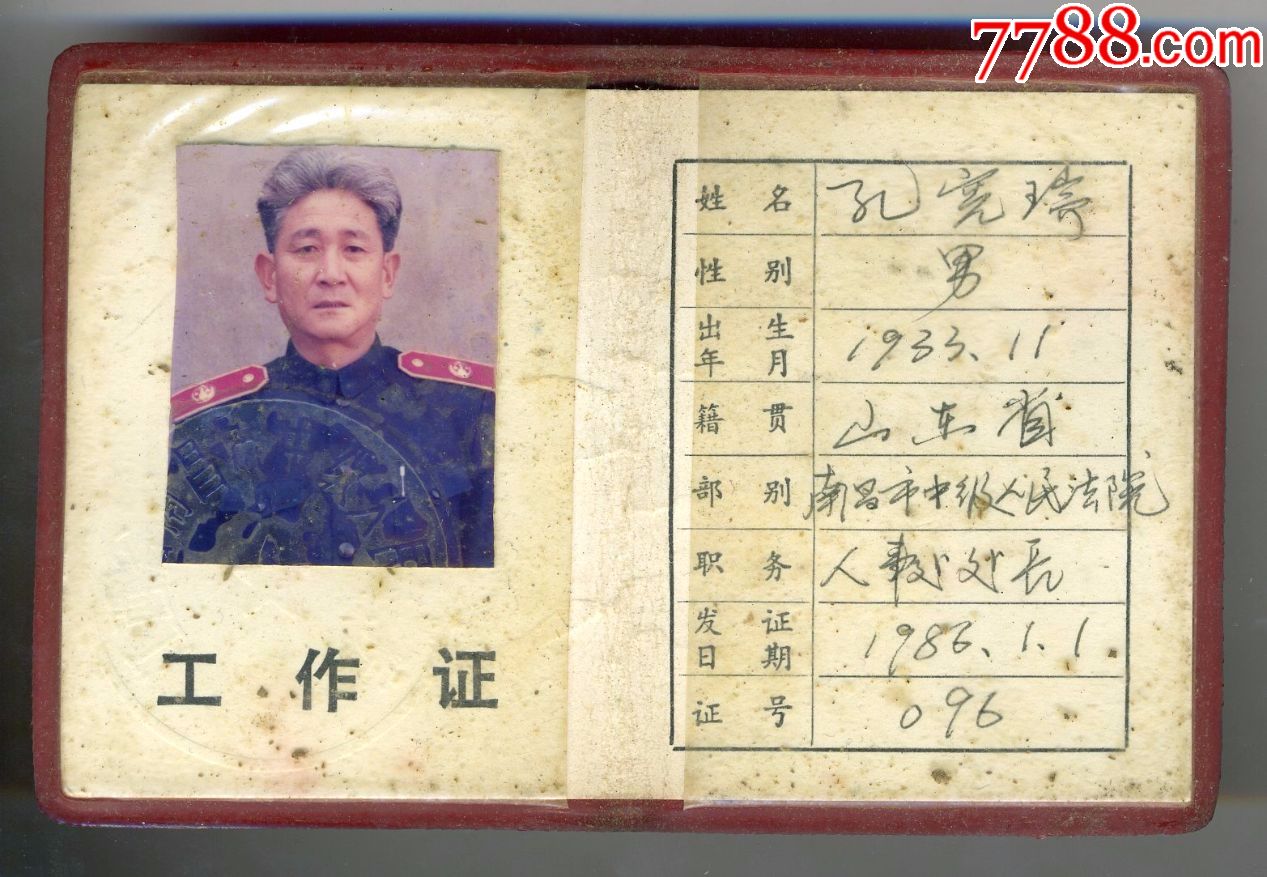 7788.com
工作证
姓名 孔宪瑞
性别 男
出生年月 1933.11
籍贯 山东省
部别 南昌市中级人民法院
职务 人事处处长
发证日期 1986.1.1
证号 096